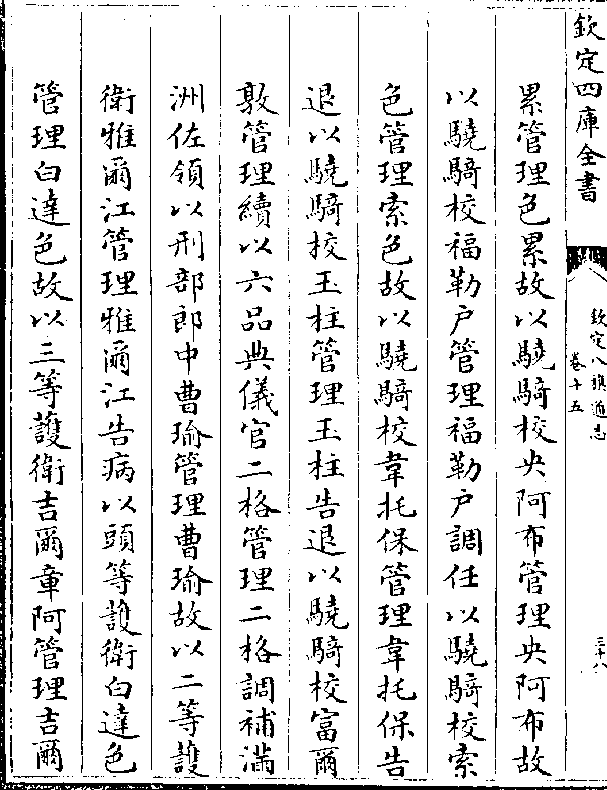 欽定四庫全書
欽定八旗通志
卷十五
三十八
累管理色累故以驍騎校央阿布管理央阿布故
以驍騎校福勒戸管理福勒戸調任以驍騎校索
色管理索色故以驍騎校韋托保管理韋托保告
退以驍騎校玉柱管理玉柱告退以驍騎校富爾
敦管理續以六品典儀官二格管理二格調補滿
洲佐領以刑部郎中曹瑜管理曹瑜故以二等護
衛雅爾江管理雅爾江告病以頭等護衛白達色
管理白達色故以三等護衛吉爾章阿管理吉爾